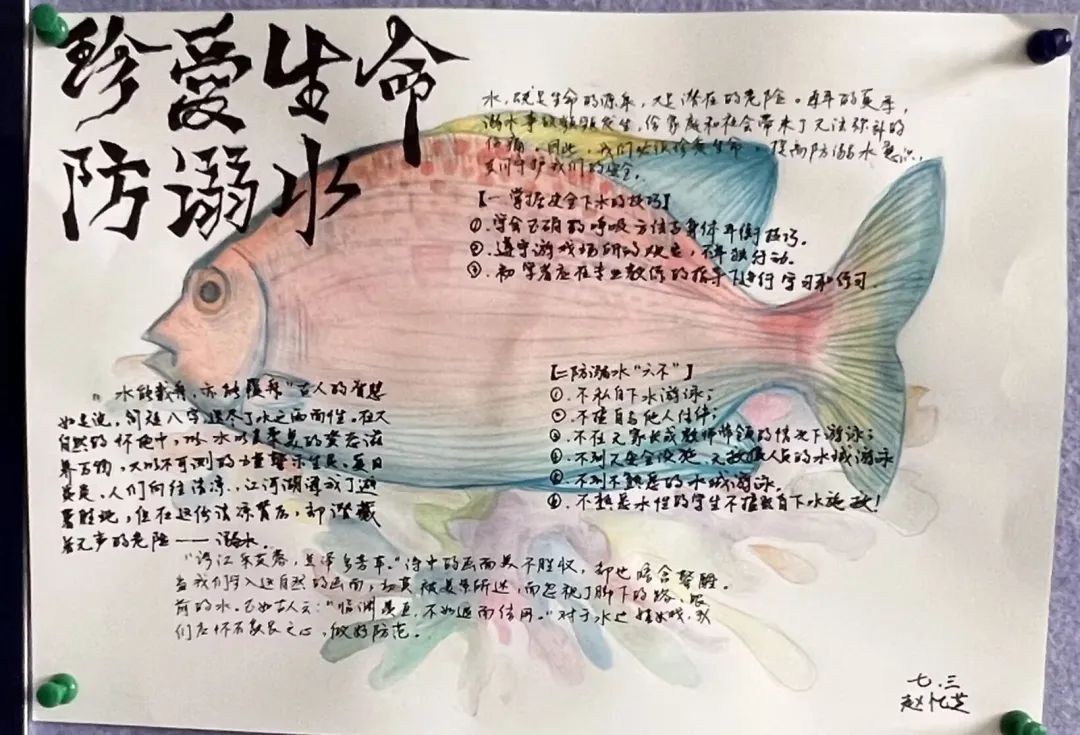 珍爱生命
防溺水
水,既是生命的源泉,又是潜在的危险。每年的夏季,
溺水事故频频发生,给家庭和社会带来了无法弥补的
伤痛。因此,我们必须珍爱生命,提高防溺水意识,
守护我们的安全。
【一 掌握安全下水的技巧】
①.学会正确的呼吸方法与身体平衡技巧。
②.遵守游戏场所的规定,不单独行动。
③.初学者应在专业教练的指导下进行学习和练习.
【二防溺水"六不"】
①.不私自下水游泳;
②.不擅自与他人结伴;
③.不在无家长或教师带领的情况下游泳;
④.不到无安全设施、无救援人员的水域游泳
⑤.不到不熟悉的水域游泳.
⑥.不熟悉水性的学生不擅自下水施救!
水能载舟,亦能覆舟"古人的智慧
如是说,简短八字道尽了水之两面性。在大
自然的怀抱中,水以其柔美的姿态滋
养万物,又以不可测的力量警示生灵。夏日
炎炎,人们向往清凉,江河湖海成了避
暑胜地,但在这份清凉背后,却潜藏
着无声的危险——溺水.
"涉江采芙蓉,兰泽多芳草。"诗中的画面美不胜收,却也暗含警醒。
当我们步入这自然的画面,切莫被美景所迷,而忽视了脚下的路、眼
前的水。正如古人云:"临渊羡鱼,不如退而结网。"对于水之嬉戏,我
们应怀有敬畏之心,做好防范。
七.三
赵忆芝